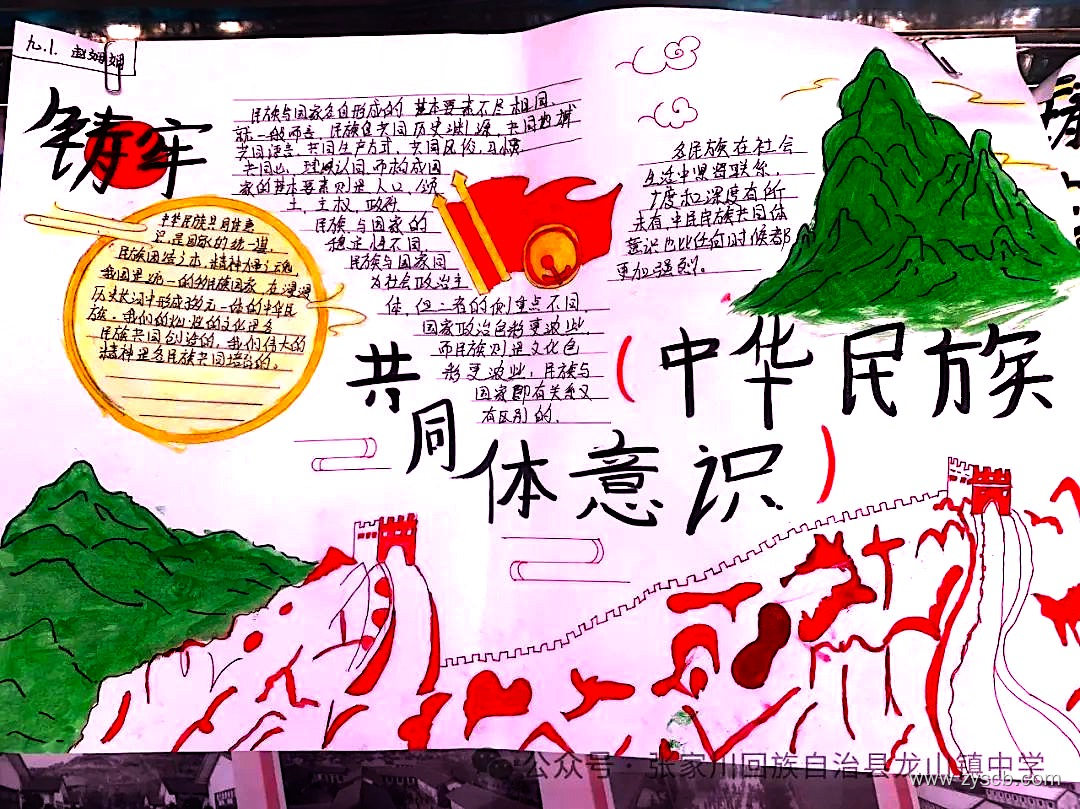 九.1. 赵姻姻
铸牢
民族与国家各自形成的 基本要素不尽相同.
就一般而言, 民族以共同历史渊源, 共同地域
共同语言, 共同生产方式, 共同风俗, 习惯
共同心理认同, 而构成国
家的基本要素则是人口, 领
土, 主权, 政府
民族与国家的
稳定性不同,
民族与国家同
为社会政治主
体, 但二者的侧重点不同,
国家政治色彩更浓些,
而民族则是文化色
彩更浓些, 民族与
国家即有关系又
有区别的.
各民族在社会
生活中紧密联系,
广度和深度有所
未有, 中民民族共同体
意识也比任何时候都
更加强烈。
中华民族共同体意
识是国家的统一基,
民族团结之本, 精神
我国是统一的多民族国家, 在漫漫
历史长河中形成多元一体的中华民
族. 我们的 的文化是各
民族共同创造的, 我们伟大的
精神是各民族共同培育的.
共同体意识
(中华民族)
公众号 · 张家川回族自治县龙山镇中学
www.zyscb.com